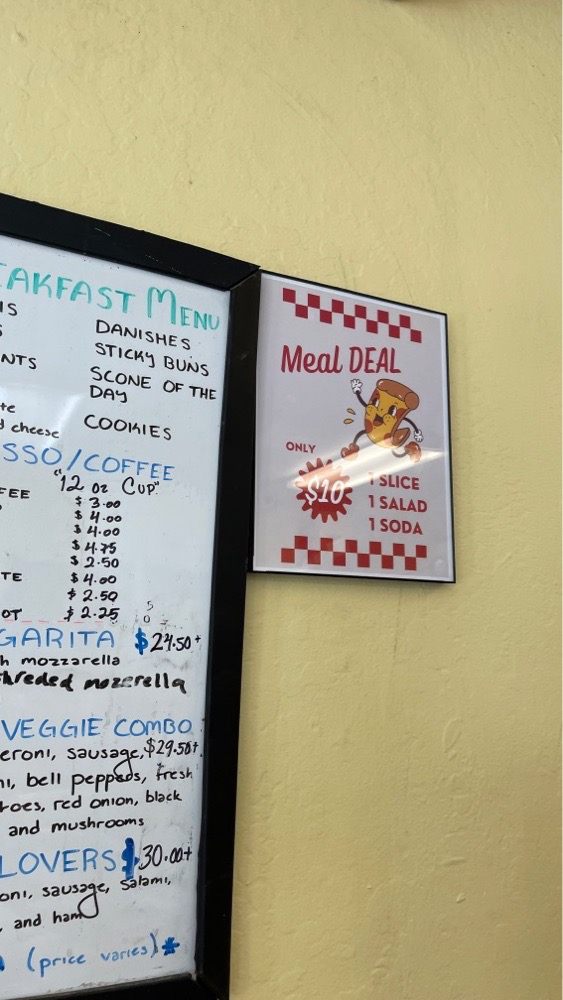 AKFAST MENU
IS
DANISHES
STICKY BUNS
NTS
SCONE OF THE
DAY
te
d cheese
COOKIES
SSO/COFFEE
"12 oz Cup"
FEE $3.00
$4.00
$4.00
$4.75
$2.50
TE $4.00
$2.50
OT $2.25
5
0
GARITA $24.50+
h mozzarella
hreded mozerella
VEGGIE COMBO
eroni, sausage, $29.50+
ni, bell peppers, fresh
toes, red onion, black
and mushrooms
LOVERS $30.00+
oni, sausage, salami,
, and ham
(price varies)*
Meal DEAL
ONLY
$10
1 SLICE
1 SALAD
1 SODA